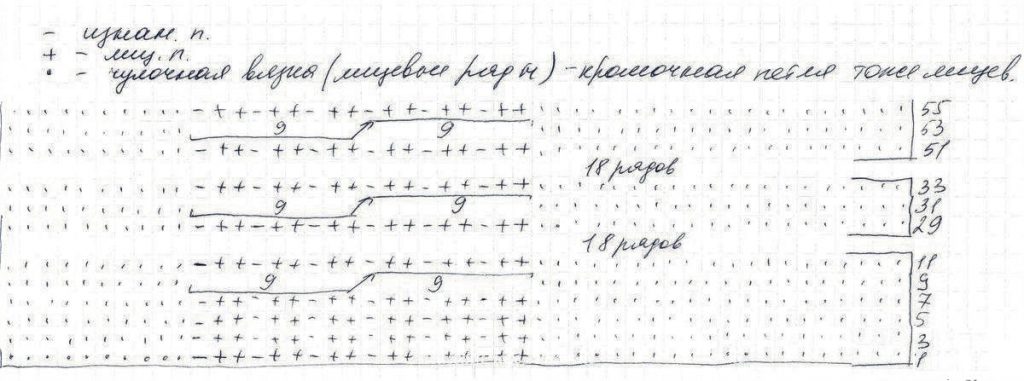 - изнан. п.
+ - лиц. п.
• - чулочная вязка (лицевые ряды) - кромочная петля тоже лицев.
- + + - + + - + + - + + - + + - + + 55
9 9 53
- + + - + + - + + - + + - + + - + + 51
18 рядов
- + + - + + - + + - + + - + + - + + 33
9 9 31
- + + - + + - + + - + + - + + - + + 29
18 рядов
- + + - + + - + + - + + - + + - + + 11
9 9 9
- + + - + + - + + - + + - + + - + + 7
- + + - + + - + + - + + - + + - + + 5
- + + - + + - + + - + + - + + - + + 3
- + + - + + - + + - + + - + + - + + 1